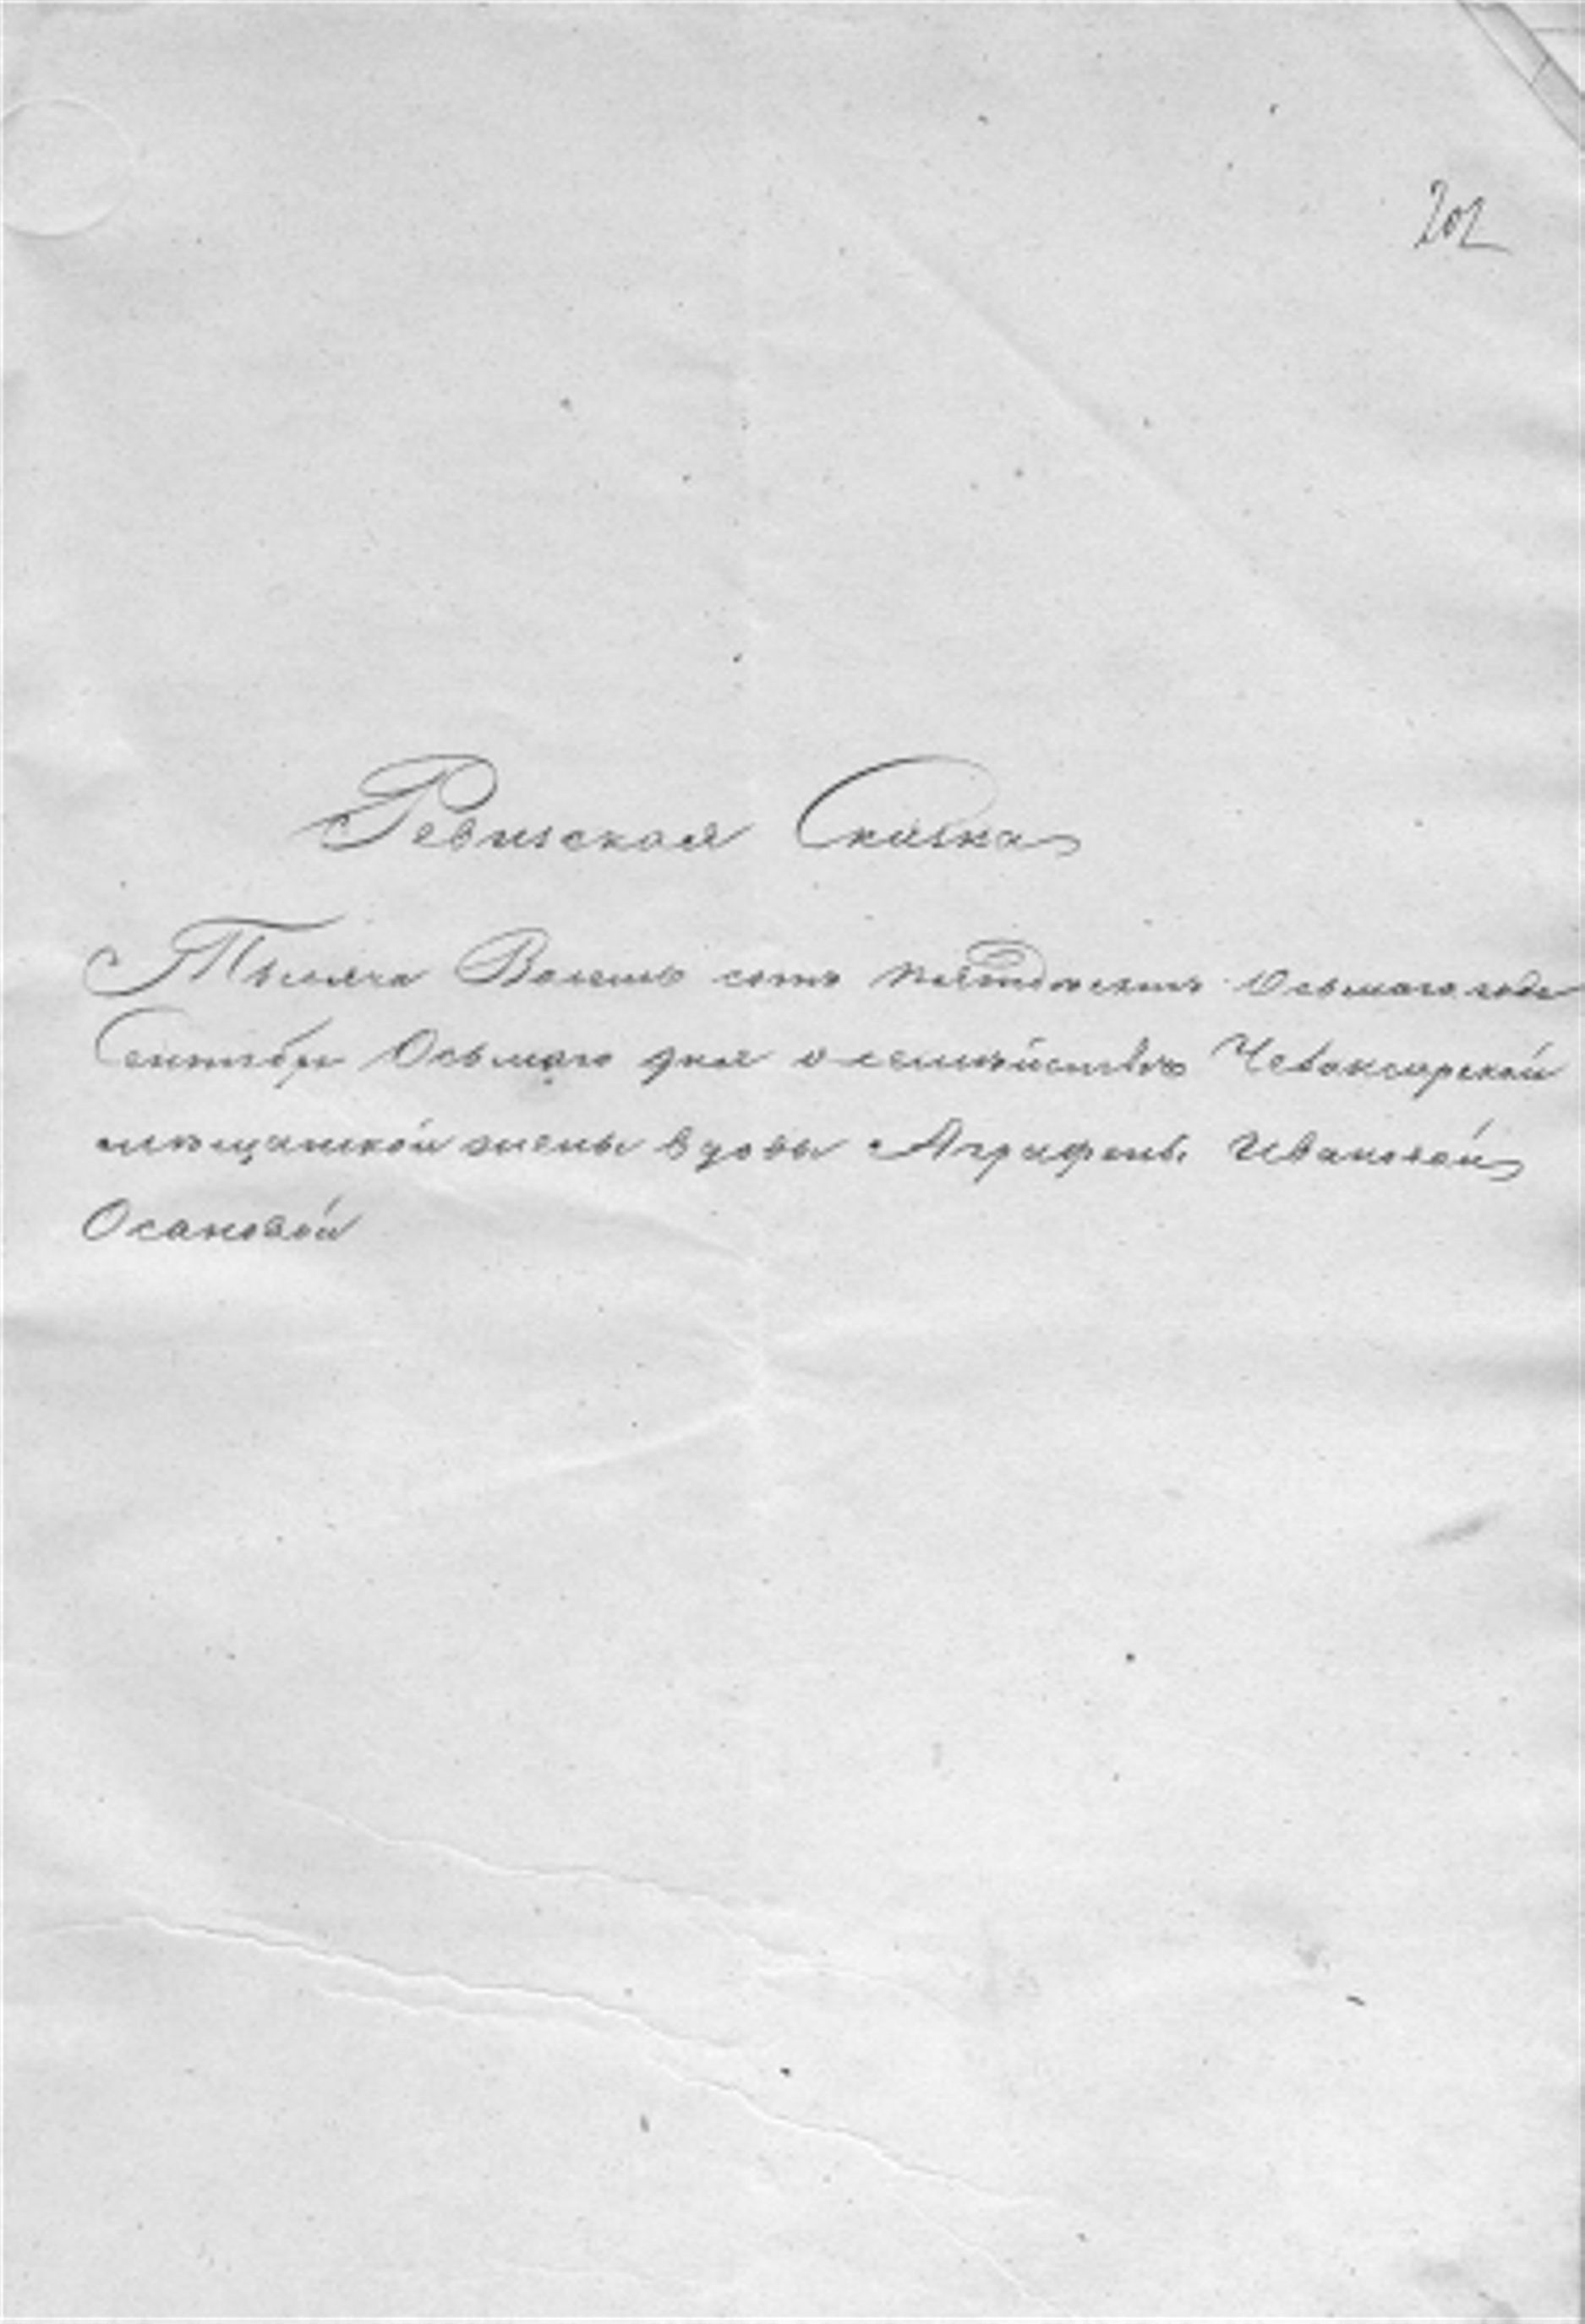 202
Ревиская Сказка
Тысяча Восемь сотъ пятдесятъ Осьмаго года
Сентебри Осьмаго дня о семѣйствѣ Чебоксарской
мѣщанской жены вдовы Аграфены Ивановой
Осановой